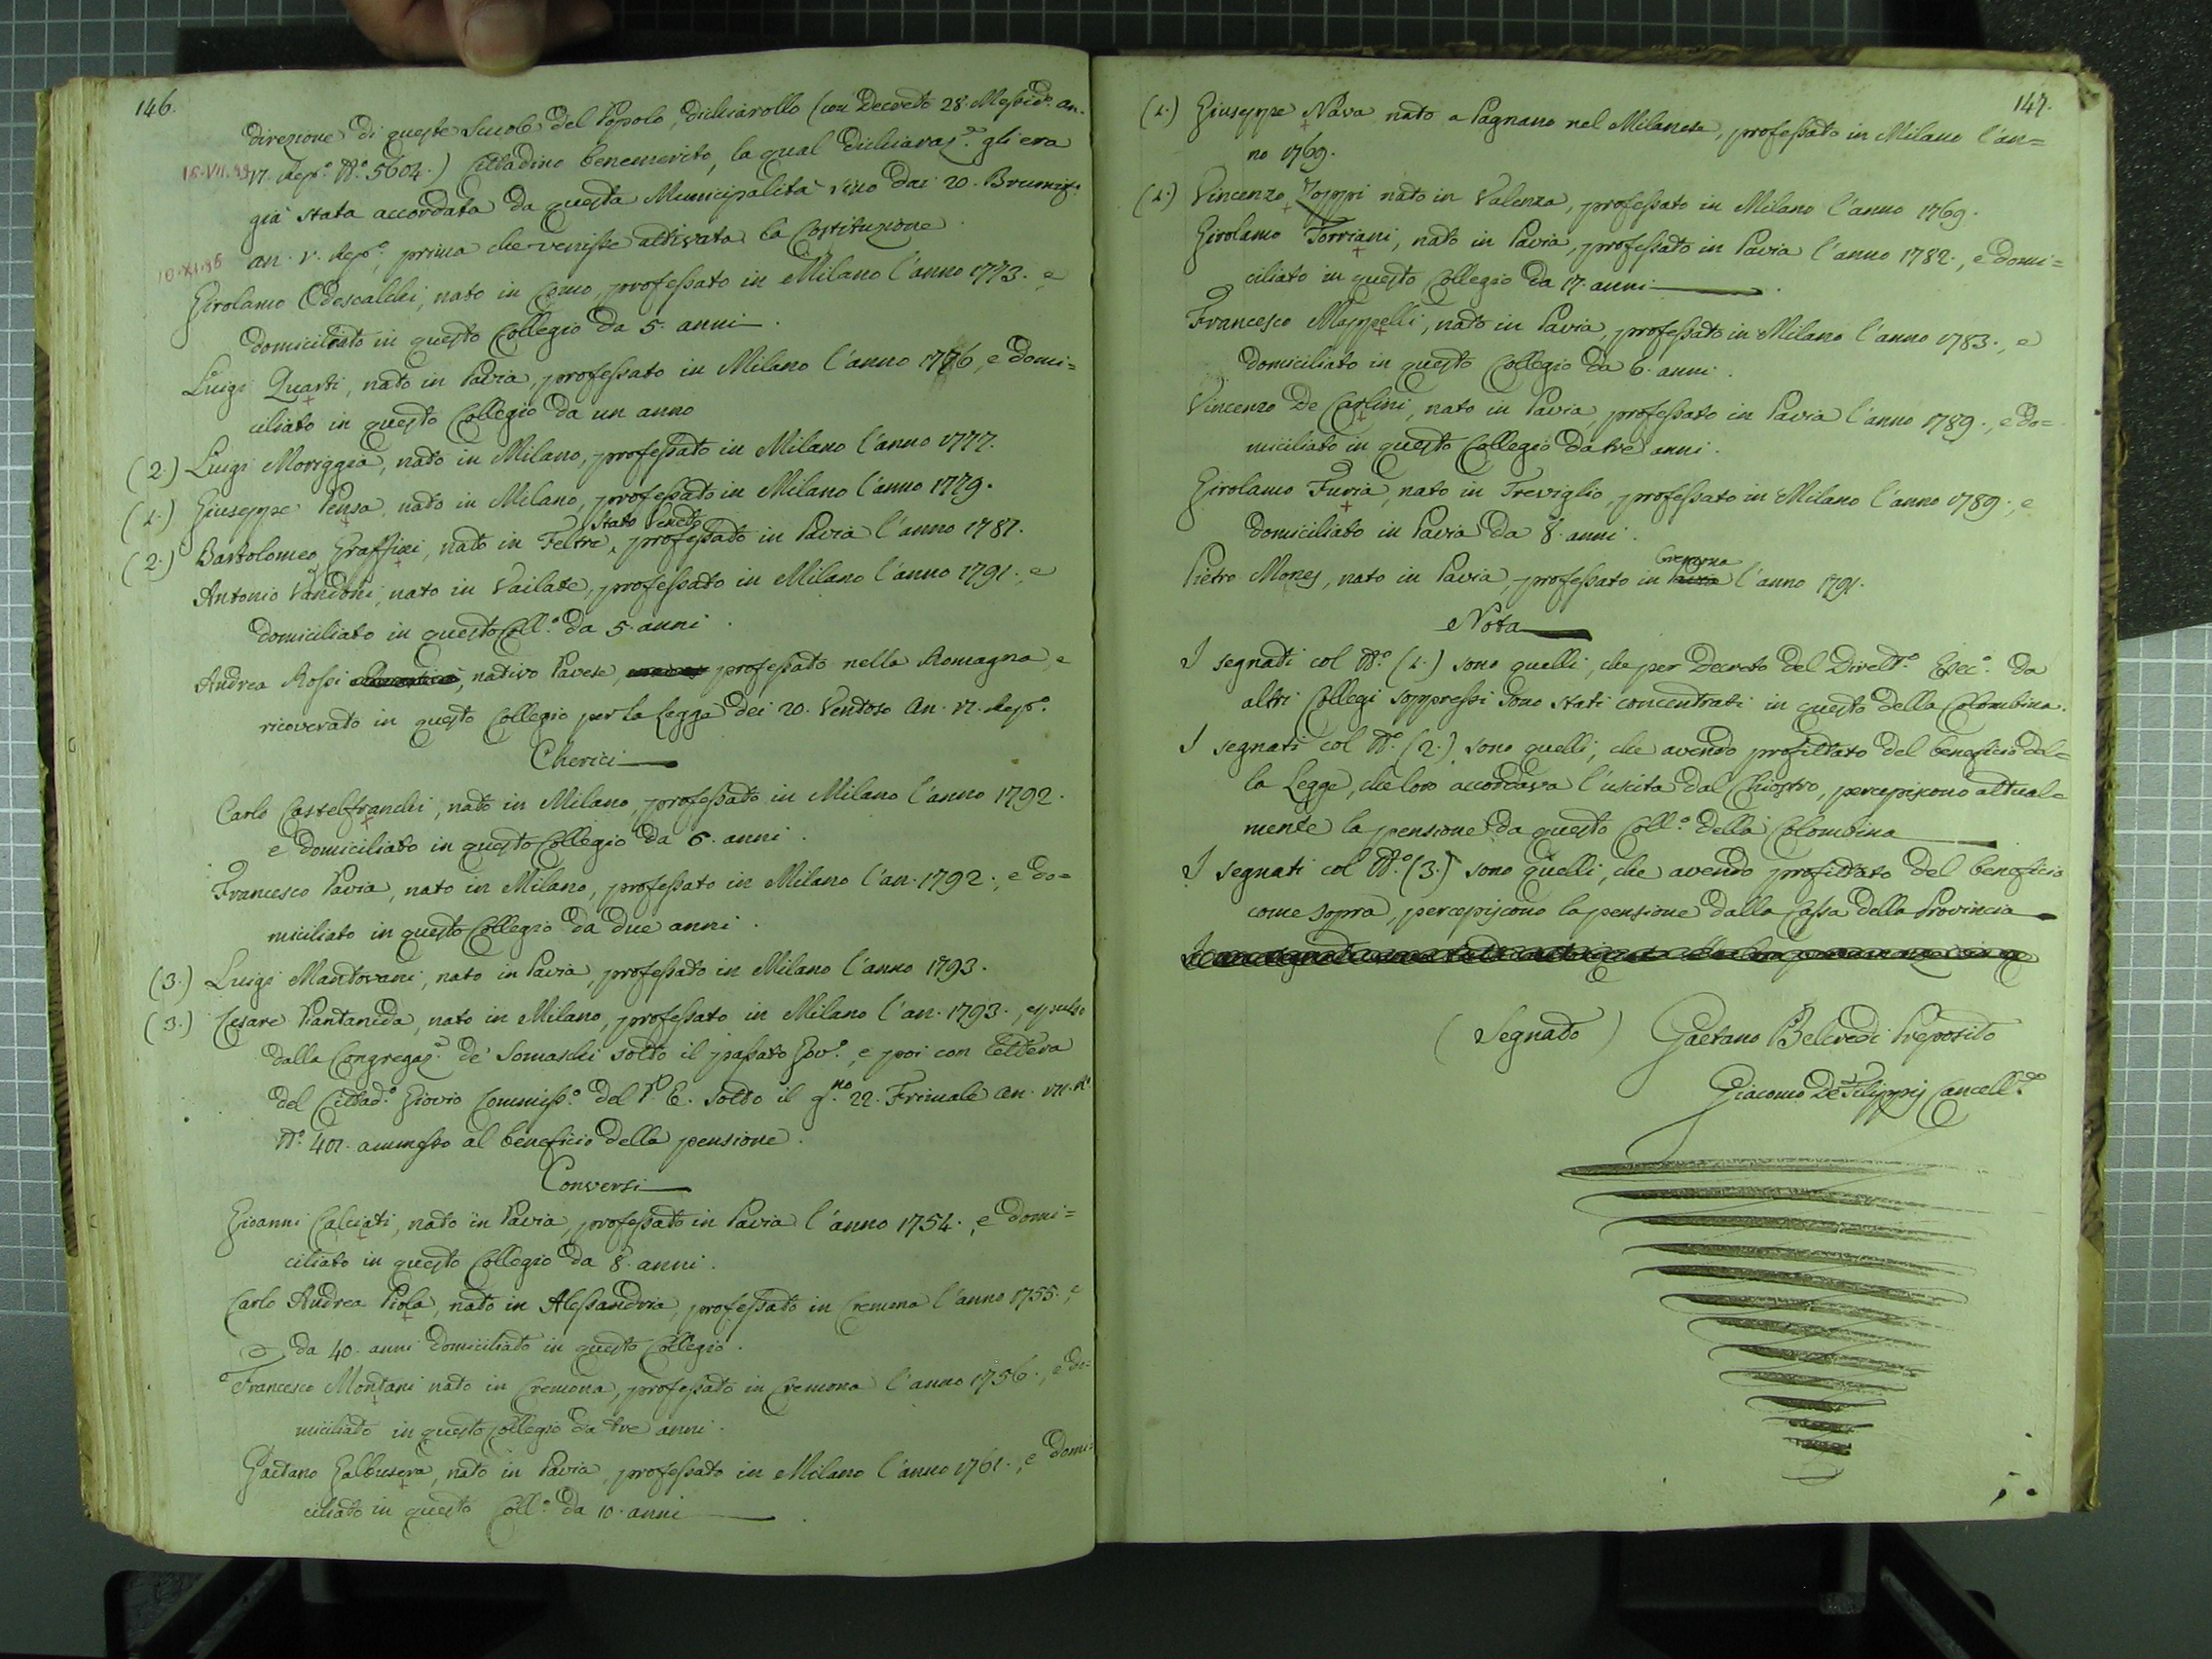 146.
direzione di queste Scuole del Popolo, dichiarollo (con Decreto 28. Messid.º an.
16.VII.98
VI. Rep.º N.º 5604.) Cittadino benemerito, la qual dichiaraz.e gli era
già stata accordata da questa Municipalità sino dai 20. Brumif.
10.XI.96
an. V. Rep.º, prima che venisse attivata la Costituzione.
Girolamo Odescalchi, nato in Como, professato in Milano l'anno 1773., e
domiciliato in questo Collegio da 5. anni.
Luigi Quarti, nato in Pavia, professato in Milano l'anno 1776, e domi=
ciliato in questo Collegio da un anno
(2.) Luigi Moriggia, nato in Milano, professato in Milano l'anno 1777.
(1.) Giuseppe Pensa, nato in Milano, professato in Milano l'anno 1779.
Stato Veneto
(2.) Bartolomeo Graffini, nato in Feltre, professato in Pavia l'anno 1787.
Antonio Vandoni, nato in Vailate, professato in Milano l'anno 1791., e
domiciliato in questo Coll.º da 5. anni.
Andrea Rossi, nativo Pavese, professato nella Romagna, e
ricoverato in questo Collegio per la Legge dei 20. Ventoso an. VI. Rep.º
Cherici
Carlo Castelfranchi, nato in Milano, professato in Milano l'anno 1792.
e domiciliato in questo Collegio da 6. anni.
Francesco Pavia, nato in Milano, professato in Milano l'an. 1792., e do=
miciliato in questo Collegio da due anni.
(3.) Luigi Mantovani, nato in Pavia, professato in Milano l'anno 1793.
(3.) Cesare Piantanida, nato in Milano, professato in Milano l'an. 1793., espulso
dalla Congregaz.e de' Somaschi sotto il passato Gov.º, e poi con lettera
del Cittad.º Giovio Commiss.º del P. E. sotto il g.no 22. Frimale an. VII. R.
N.º 401. ammesso al beneficio della pensione.
Conversi
Gioanni Calciati, nato in Pavia, professato in Pavia l'anno 1754., e domi=
ciliato in questo Collegio da 8. anni.
Carlo Andrea Piola, nato in Alessandria, professato in Cremona l'anno 1755., e
da 40. anni domiciliato in questo Collegio.
Francesco Montani nato in Cremona, professato in Cremona l'anno 1756., e do=
miciliato in questo Collegio da tre anni.
Gaetano Galbusera, nato in Pavia, professato in Milano l'anno 1761., e domi=
ciliato in questo Coll.º da 10. anni
147.
(1.) Giuseppe Nava nato a Pagnano nel Milanese, professato in Milano l'an=
no 1769.
(1.) Vincenzo Joppi nato in Valenza, professato in Milano l'anno 1769.
Girolamo Torriani, nato in Pavia, professato in Pavia l'anno 1782., e domi=
ciliato in questo Collegio da 17. anni.
Francesco Mappelli, nato in Pavia, professato in Milano l'anno 1783., e
domiciliato in questo Collegio da 6. anni.
Vincenzo De Carlini, nato in Pavia, professato in Pavia l'anno 1789., e do=
miciliato in questo Collegio da tre anni.
Girolamo Furia, nato in Treviglio, professato in Milano l'anno 1789., e
domiciliato in Pavia da 8. anni.
Cremona
Pietro Mones, nato in Pavia, professato in Pavia l'anno 1791.
Nota
I segnati col N.º (1.) sono quelli, che per Decreto del Dirett.º Esec.º da
altri Collegi soppressi sono stati concentrati in questo della Colombina.
I segnati col N.º (2.) sono quelli, che avendo profittato del beneficio del=
la Legge, che loro accordava l'uscita dal Chiostro, percepiscono attual=
mente la pensione da questo Coll.º della Colombina
I segnati col N.º (3.) sono quelli, che avendo profittato del beneficio
come sopra, percepiscono la pensione dalla Cassa della Provincia
(Segnato) Gaetano Belcredi Preposito
Giacomo De Filippis Cancell.e